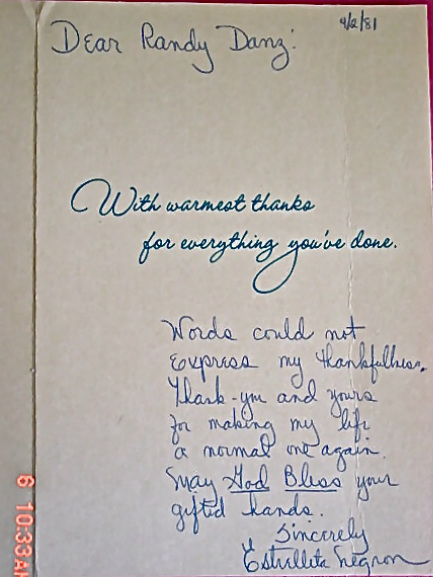 9/2/81
Dear Randy Danz:
With warmest thanks
for everything you've done.
Words could not
Express my thankfullness.
Thank-you and yours
for making my life
a normal one again.
May God Bless your
gifted hands.
Sincerely
Estrillita Negron
6 10:33AM